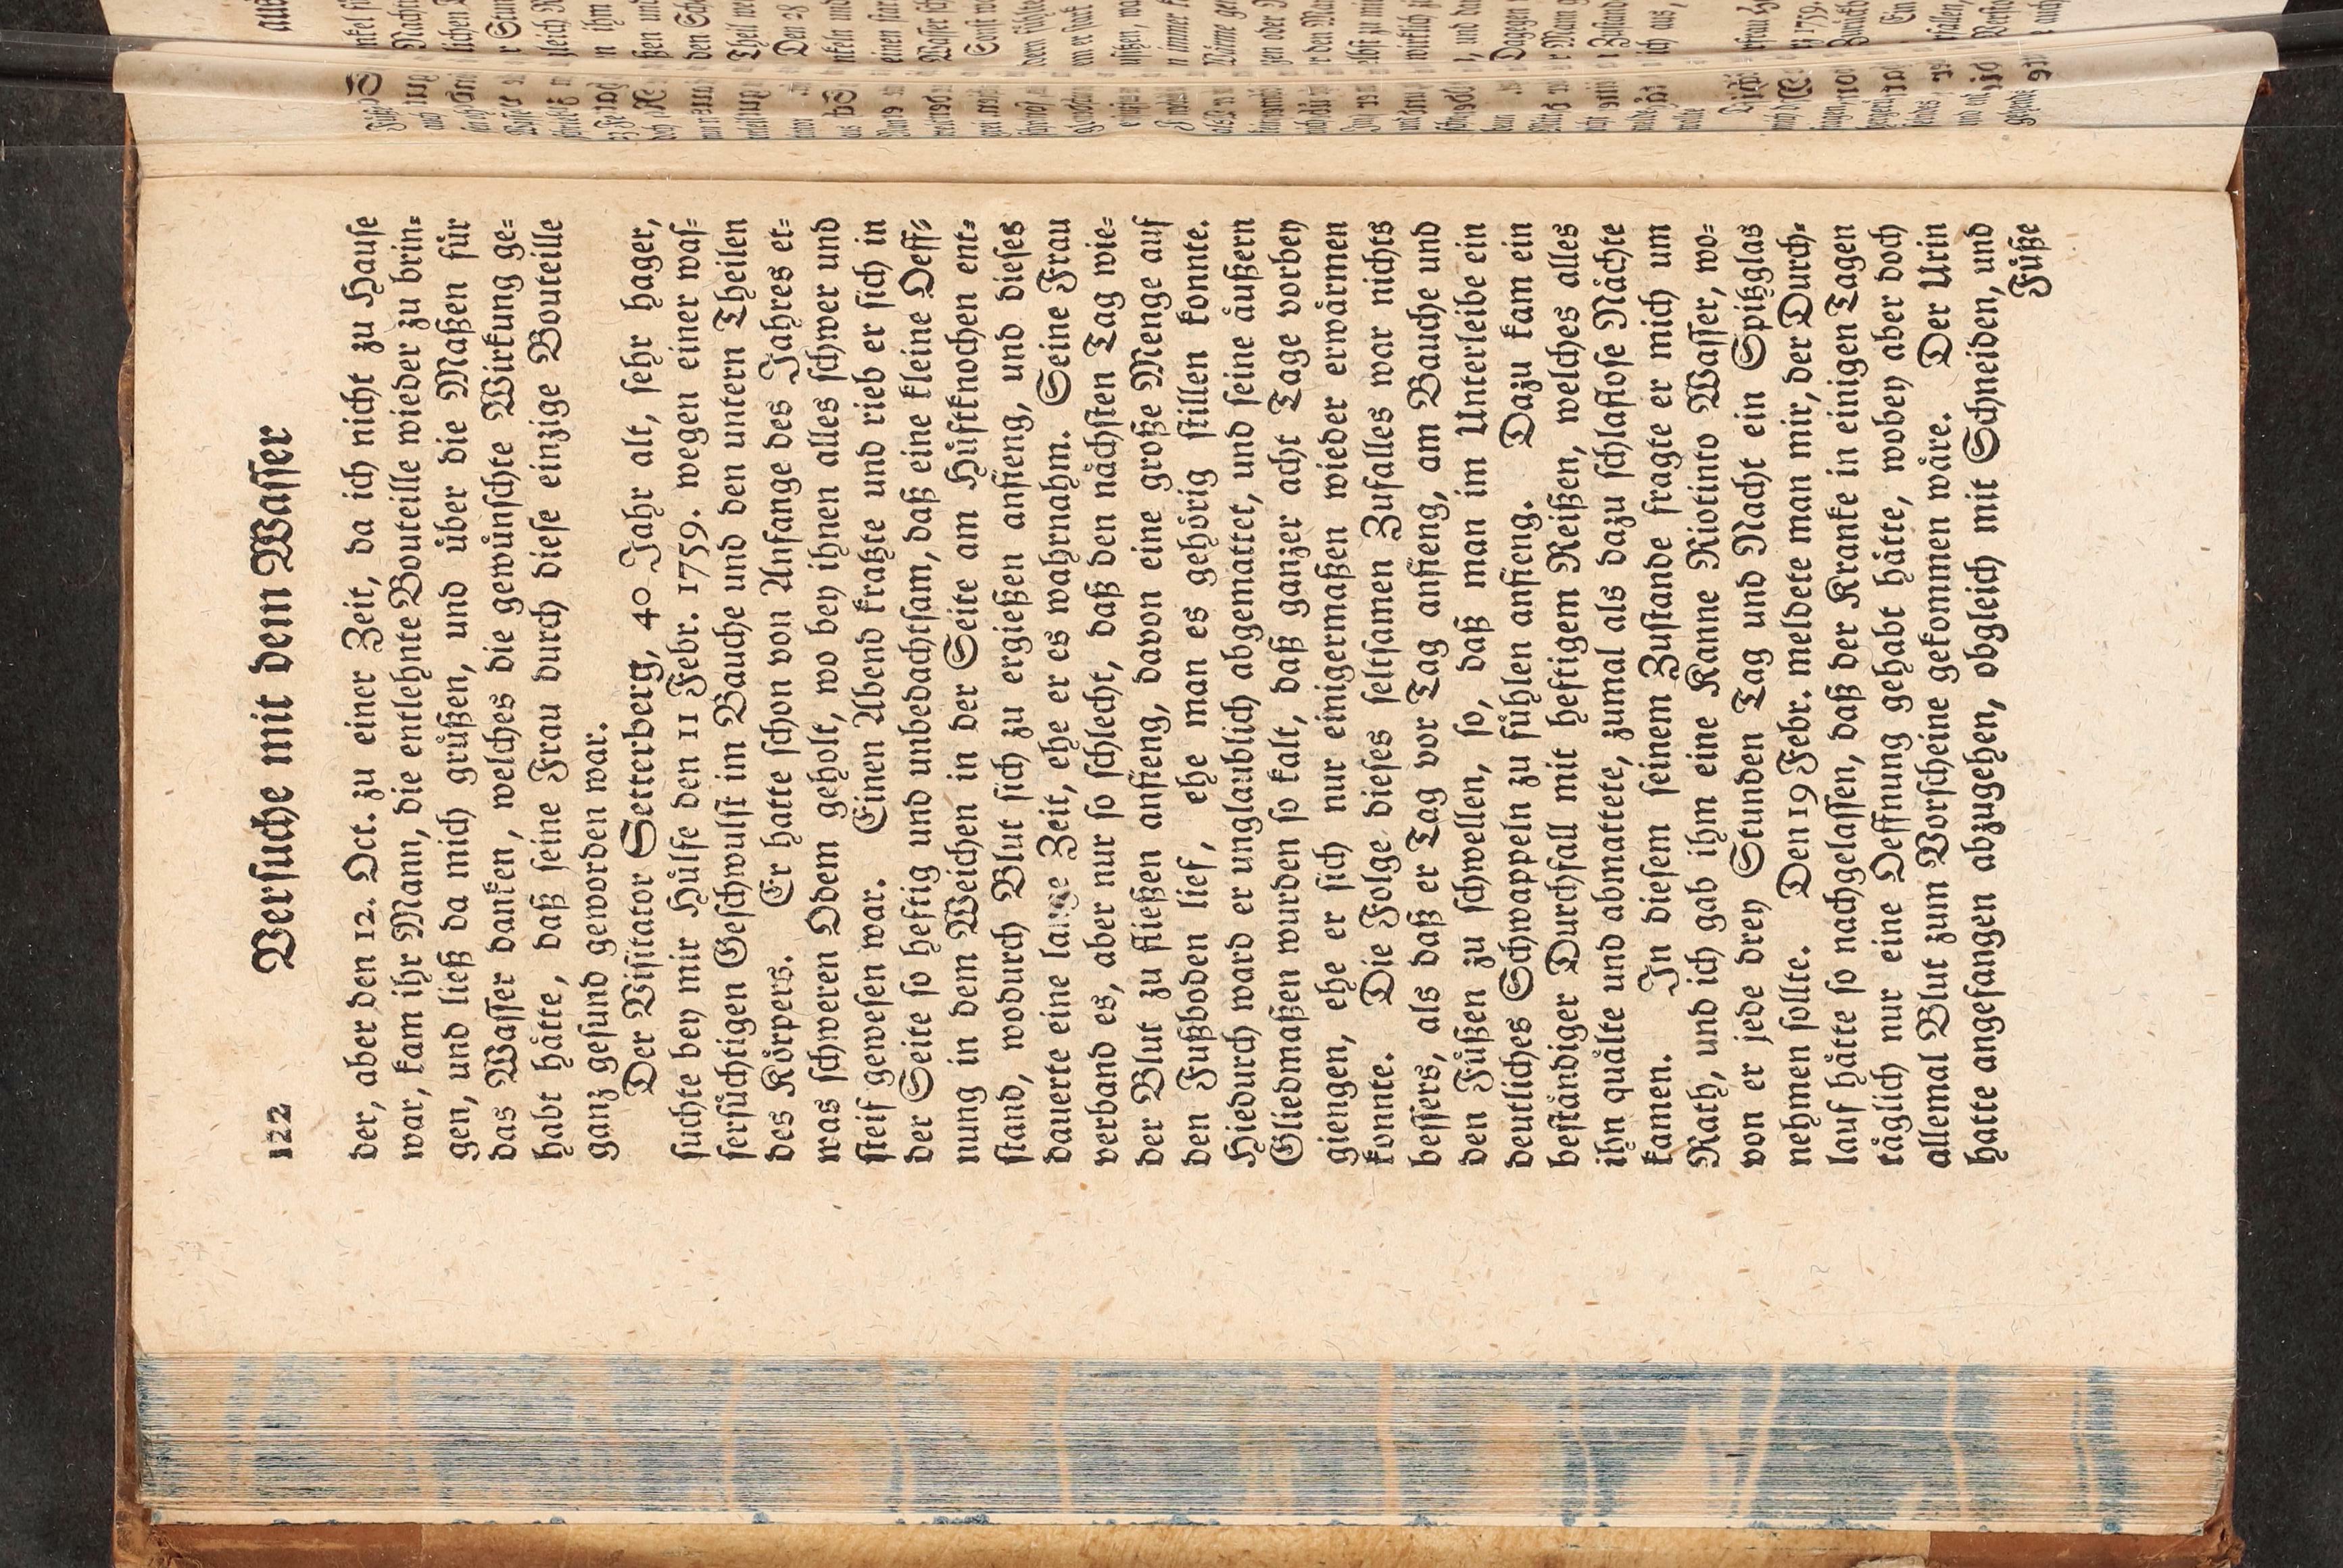 122 Versuche mit dem Wasser
der, aber den 12. Oct. zu einer Zeit, da ich nicht zu Hause
war, kam ihr Mann, die entlehnte Bouteille wieder zu brin⸗
gen, und ließ da mich grüßen, und über die Maßen für
das Wasser danken, welches die gewünschte Wirkung ge⸗
habt hätte, daß seine Frau durch diese einzige Bouteille
ganz gesund geworden war.
Der Visitator Setterberg, 40 Jahr alt, sehr hager,
suchte bey mir Hülfe den 11 Febr. 1759. wegen einer was⸗
sersüchtigen Geschwulst im Bauche und den untern Theilen
des Körpers. Er hatte schon von Anfange des Jahres et⸗
was schweren Odem geholt, wo bey ihnen alles schwer und
steif gewesen war. Einen Abend kratzte und rieb er sich in
der Seite so heftig und unbedachtsam, daß eine kleine Oeff⸗
nung in dem Weichen in der Seite am Hüftknochen ent⸗
stand, wodurch Blut sich zu ergießen anfieng, und dieses
dauerte eine lange Zeit, ehe er es wahrnahm. Seine Frau
verband es, aber nur so schlecht, daß den nächsten Tag wie⸗
der Blut zu fließen anfieng, davon eine große Menge auf
den Fußboden lief, ehe man es gehörig stillen konnte.
Hiedurch ward er unglaublich abgemattet, und seine äußern
Gliedmaßen wurden so kalt, daß ganzer acht Tage vorbey
giengen, ehe er sich nur einigermaßen wieder erwärmen
konnte. Die Folge dieses seltsamen Zufalles war nichts
bessers, als daß er Tag vor Tag anfieng, am Bauche und
den Füßen zu schwellen, so, daß man im Unterleibe ein
deutliches Schwappeln zu fühlen anfieng. Dazu kam ein
beständiger Durchfall mit heftigem Reißen, welches alles
ihn quälte und abmattete, zumal als dazu schlaflose Nächte
kamen. In diesem seinem Zustande fragte er mich um
Rath, und ich gab ihm eine Kanne Riotinto Wasser, wo⸗
von er jede drey Stunden Tag und Nacht ein Spitzglas
nehmen sollte. Den 19 Febr. meldete man mir, der Durch⸗
lauf hätte so nachgelassen, daß der Kranke in einigen Tagen
täglich nur eine Oeffnung gehabt hätte, wobey aber doch
allemal Blut zum Vorscheine gekommen wäre. Der Urin
hatte angefangen abzugehen, obgleich mit Schneiden, und
Füße